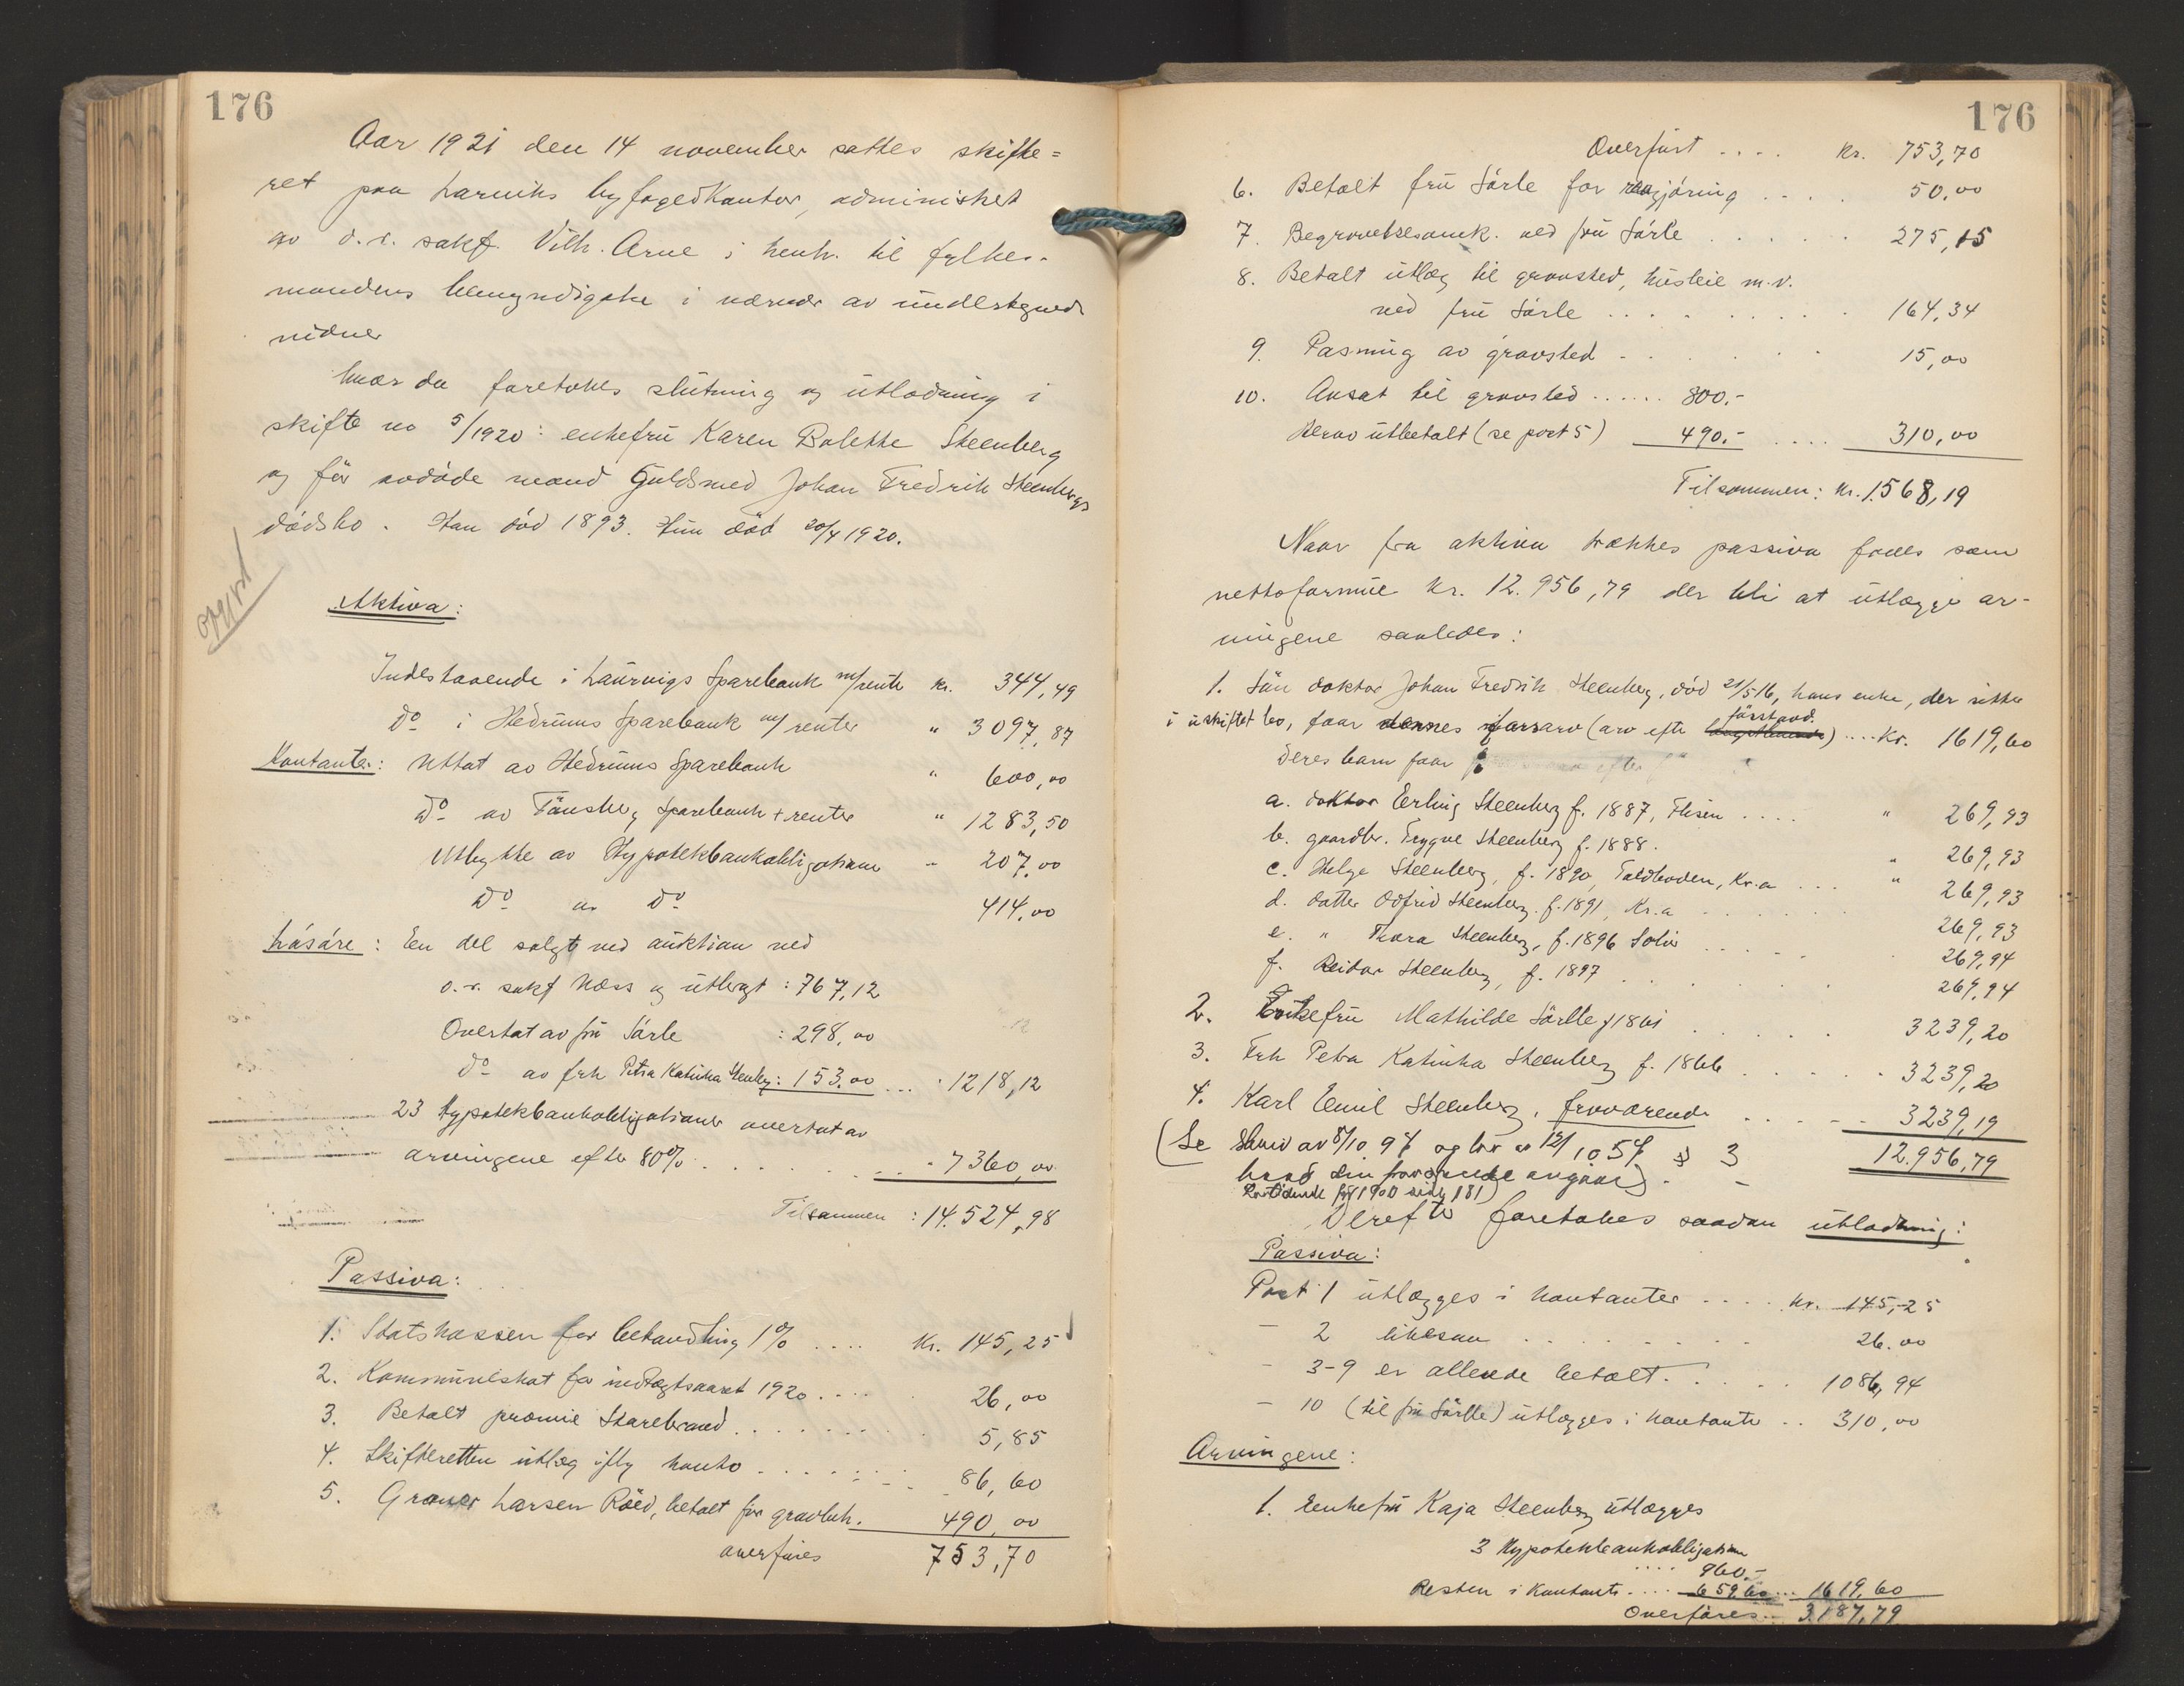 176
Aar 1921 den 14 november sattes skifte=
ret paa Larviks byfogedkontor, administret
av o.r. sakf. Vilh. Arne i henh. til fylkes-
mandens bemyndigelse i nærvær av undertegnede
vidner
hvor da foretokes slutning og utlodning i
skifte no 5/1920: enkefru Karen Bolette Steenberg
og før avdøde mand Guldsmed Johan Fredrik Steenbergs
dødsbo. Han død 1893. Hun død 20/4 1920.
Aktiva:
Indestaaende i Laurvigs Sparebank m/rente kr. 344,49
Do i Hedrums Sparebank m/renter " 3097,87
Kontanter: Uttat av Hedrums Sparebank " 600,00
Do av Tønsberg Sparebank + renter " 1283,50
Utbytte av Hypotekbankobligationer - 207,00
Do av Do 414,00
Løsøre: En del solgt ved auktion ved
o.r. sakf Næss og utbragt : 767,12
Overtat av fru Sørle : 298,00
do av frk Petra Katinka Steenberg: 153,00 ... 1218,12
23 Hypotekbankobligationer overtat av
arvingene efter 80% . . . . . 7360,00
Tilsammen : 14.524,98
Passiva:
1. Statskassen for behandling 1% .... Kr. 145,25
2. Kommuneskat for indtægtsaaret 1920 .... 26,00
3. Betalt præmie Storebrand . . . . . 5,85
4. Skifteretten utlæg iflg konto . . . . . 86,60
5. Graver Larsen Røed, betalt for gravluk. 490,00
overføres 753,70
176
Overført .... Kr. 753,70
6. Betalt fru Sørle for rengjøring .... 50,00
7. Begravelsesomk. ved fru Sørle . . . . . 275,15
8. Betalt utlæg til gravsted, husleie m.v.
ved fru Sørle . . . . . 164,34
9. Pasning av gravsted . . . . . 15,00
10. Avsat til gravsted ...... 800.-
Herav utbetalt (se post 5) 490.- .... 310,00
Tilsammen: Kr. 1568,19
Naar fra aktiva trækkes passiva faaes som
nettoformue Kr. 12.956,79 der bli at utlægge ar-
vingene saaledes:
1. Søn doktor Johan Fredrik Steenberg, død 21/5 16, hans enke, der sitter
førstavd.
i uskiftet bo, faar dennes farsarv (arv efter ) .... Kr. 1619,60
Deres barn faar
a. doktor Erling Steenberg f. 1887, Flisen .... " 269,93
b. gaardbr. Trygve Steenberg f. 1888. " 269,93
c. Helge Steenberg, f. 1890, Toldboden, Kr.a ... " 269,93
d. datter Odfrid Steenberg. f. 1891, Kr.a . . . . . 269,93
e. " Thora Steenberg, f. 1896 Solør . . . . 269,94
f. Reidar Steenberg, f. 1897 . . . . . 269,94
2. Enkefru Mathilde Sørlle f 1861 . . . . 3239,20
3. Frk Petra Katinka Steenberg f. 1866 . . . . . 3239,20
4. Karl Emil Steenberg, fraværende . . . . . 3239,19
(Se Skriv av 8/10 97 og brv av 12/10 57 3 12.956,79
hvad den fraværende angaar)
før 1900 side 181)
Derefter foretokes saadan utlodning:
Passiva:
Post 1 utlægges i kontanter .... kr. 145,25
- 2 likesaa . . . . . 26.00
- 3-9 er allerede betalt . . . . . 1086,94
- 10 (til fru Sørlle) utlægges i kontanter .. 310,00
Arvingene:
1. Enkefru Kaja Steenberg utlægges
3 Hypotekbankobligation
.... 960.-
Resten i Kontanter .... 659,60 ... 1619,60
Overføres ... 3.187,79